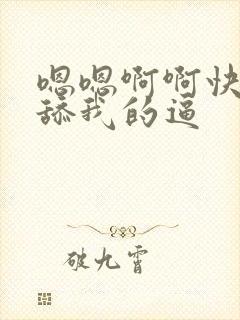 嗯嗯啊啊快
舔我的逼
破九霄